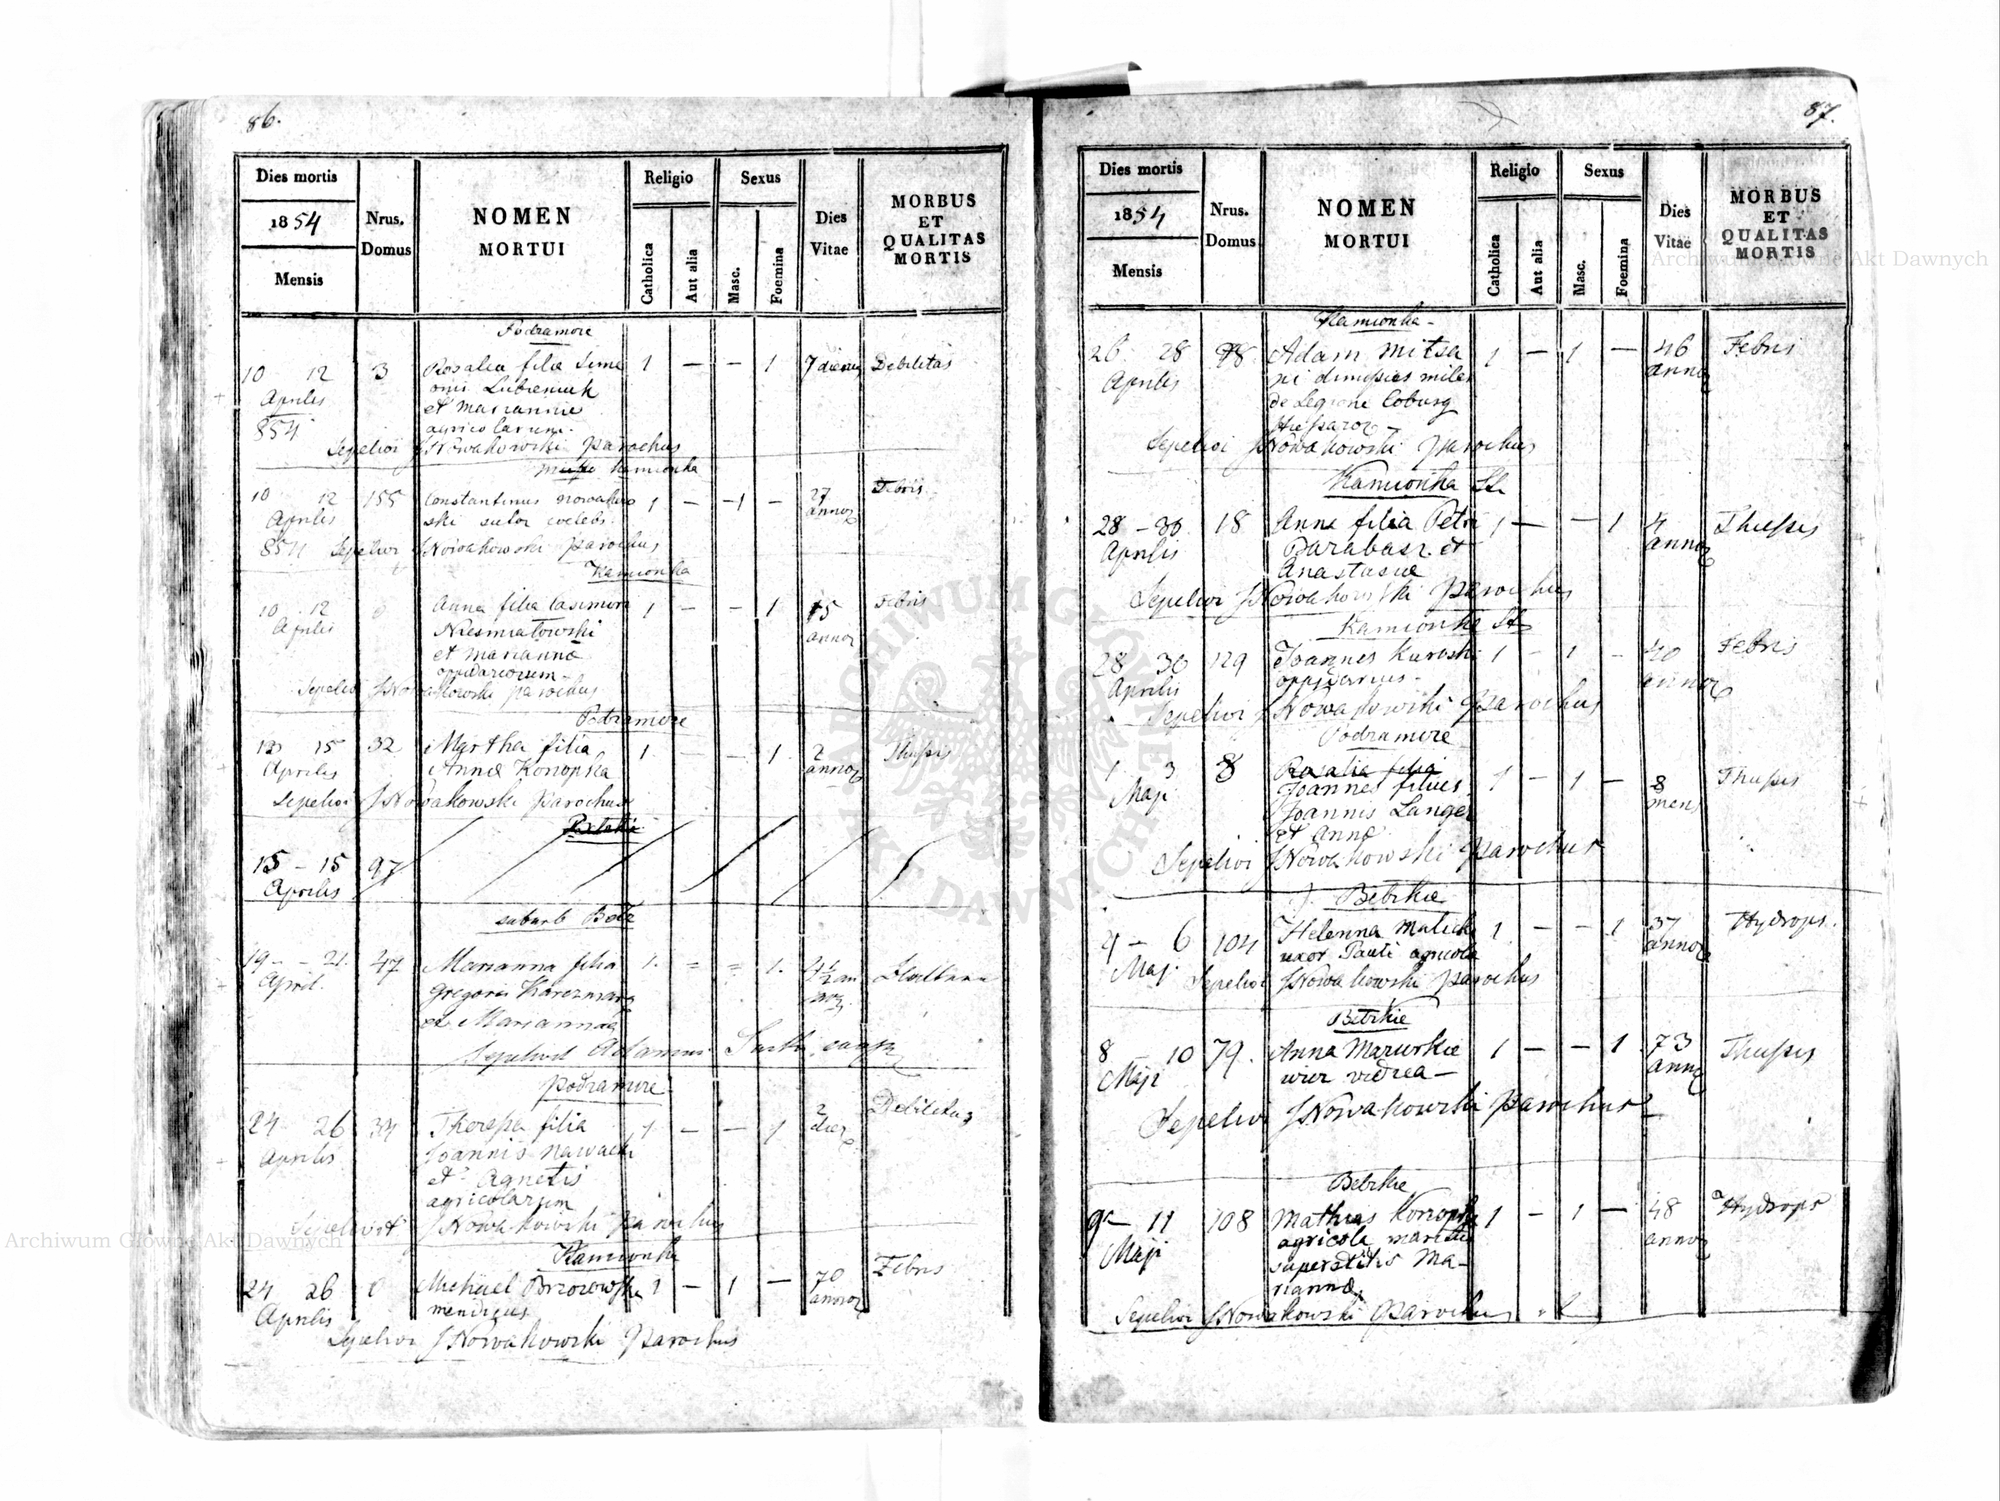 86.
Dies mortis
1854
Mensis
Nrus. Domus
NOMEN MORTUI
Religio
Catholica
Aut alia
Sexus
Masc.
Foemina
Dies Vitae
MORBUS ET QUALITAS MORTIS
Podzamcze
10 12 3 Rosalia filia Sime 1 — — 1 7 dierum Debilitas
Aprilis
854
et Marianne
agricolarum.
Sepelivi JNowakowski Parochus
Kamionka
10 12 155 Constantinus Nowakow 1 — 1 — 27 Febris
Aprilis ski sutor coelebs. annor
854 Sepelivi JNowakowski Parochus
Kamionka
10 12 0 Anna filia Casimiri 1 — — 1 15 Febris
Aprilis Niesmiatowski annor
et Marianna
oppidariorum
Sepelivi JNowakowski parochus
Podzamcze
15 32 Martha filia 1 — — 1 2 Thussis
Aprilis Anna Konopka annor
Sepelivi JNowakowski Parochus
15 – 15 97
Aprilis
suburb Bełz
19 – – 21. 47 Marianna filia 1. = = 1. 4½ an
April. Gregorii Karczmarz
et Marianna
Sepelivit Adamus
Podzamcze
24 26 34 Theressa filia 1 — — 1 2 Debilitas
Aprilis Joannis Nawacki dier
et Agnetis
agricolarum
Sepelivit JNowakowski Parochus
Kamionka
24 26 0 Michael Brzozowski 1 — 1 — 70 Febris
Aprilis mendicus annor
Sepelivi JNowakowski Parochus
87.
Dies mortis
1854
Mensis
Nrus. Domus
NOMEN MORTUI
Religio
Catholica
Aut alia
Sexus
Masc.
Foemina
Dies Vitae
MORBUS ET QUALITAS MORTIS
Kamionka
26 28 78 Adam Mitsa 1 — 1 — 46 Febris
Aprilis ni dimissus miles annor
de Legione Coburg
Sepelivi JNowakowski Parochus
Kamionka St.
28 – 30 18 Anna filia Petri 1 — — 1 4 Thussis
Aprilis Barabasz et annor
Anastasiae
Sepelivi JNowakowski Parochus
Kamionka St
28 30 129 Joannes Kuroski 1 – 1 – 40 Febris
Aprilis oppidarius annor
Sepelivi JNowakowski Parochus
Podzamcze
1 3 8 Rosalia filia
Maji Joannes filius 1 — 1 — 8 mens Thussis
Joannis Langer
et Anna
Sepelivi JNowakowski Parochus
Betzkie
4 – 6 104 Helenna Malicka 1. — — 1 37 Hydrops.
Maji uxor Pauli agricola annor
Sepelivi JNowakowski Parochus
Betzkie
8 10 79. Anna Mazurkie 1 — — 1 73 Thussis
Maji wicz vidua — annor
Sepelivi JNowakowski Parochus
Betzkie
9 – 11 108 Mathias Konopka 1 — 1 — 48 Hydrops
Maji agricola maritus annor
superstitis Ma-
rianna.
Sepelivi JNowakowski Parochus
Archiwum Główne Akt Dawnych
Archiwum Główne Akt Dawnych
ARCHIWUM GŁÓWNE AKT DAWNYCH